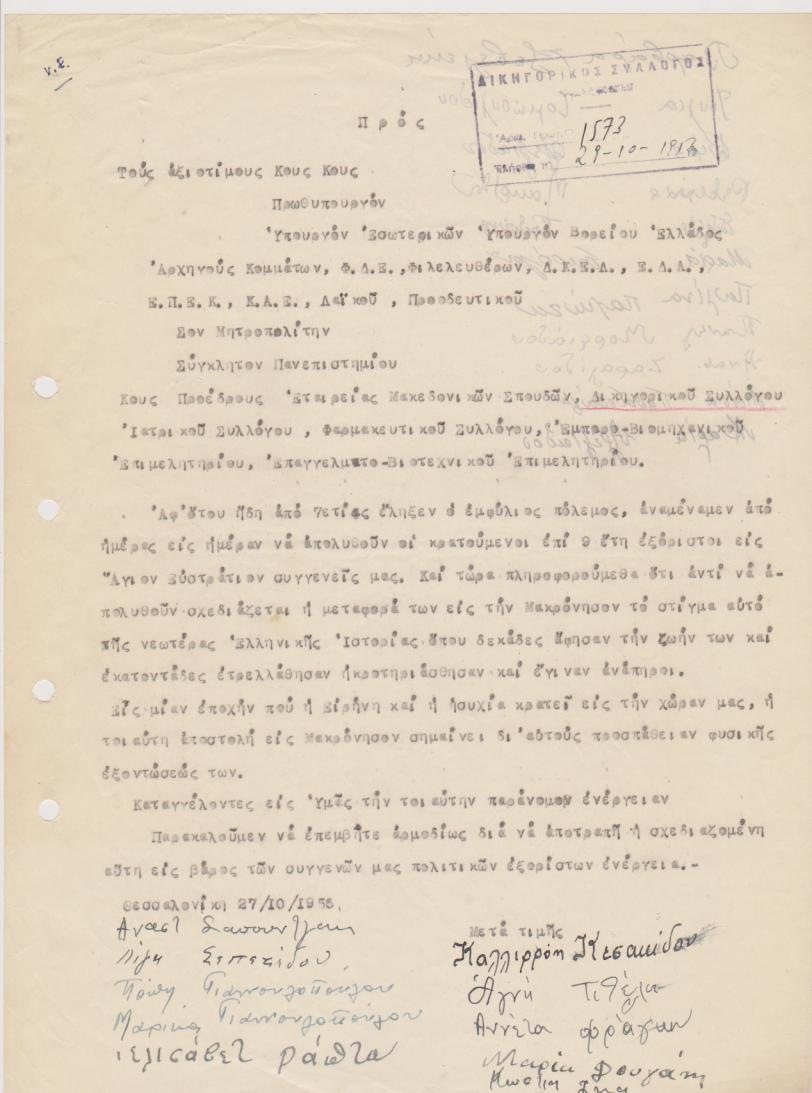 V.E.
ΔΙΚΗΓΟΡΙΚΟΣ ΣΥΛΛΟΓΟΣ
1573
29-10-19
Πρός
Τούς ἀξιοτίμους Κους Κους
Πρωθυπουργόν
Ὑπουργόν Ἐσωτερικῶν Ὑπουργόν Βορείου Ἑλλάδος
Ἀρχηγούς Κομμάτων, Φ.Δ.Ε.,Φιλελευθέρων, Δ.Κ.Ε.Λ., Ε.Δ.Α.,
Ε.Π.Ε.Κ., Κ.Α.Ε., Λαϊκοῦ , Προοδευτικοῦ
Σον Μητροπολίτην
Σύγκλητον Πανεπιστημίου
Κους Προέδρους Ἑταιρείας Μακεδονικῶν Σπουδῶν, Δικηγορικοῦ Συλλόγου
Ἰατρικοῦ Συλλόγου , Φαρμακευτικοῦ Συλλόγου, Ἐμπορο-Βιομηχανικοῦ
Ἐπιμελητηρίου, Ἐπαγγελματο-Βιοτεχνικοῦ Ἐπιμελητηρίου.
Ἀφ'ὅτου ἤδη ἀπό 7ετίας ἔληξεν ὁ ἐμφύλιος πόλεμος, ἀναμέναμεν ἀπό
ἡμέρας εἰς ἡμέραν νά ἀπολυθοῦν οἱ κρατούμενοι ἐπί 9 ἔτη ἐξόριστοι εἰς
Ἅγιον Εὐστράτιον συγγενεῖς μας. Καί τώρα πληροφορούμεθα ὅτι ἀντί νά ἀ-
πολυθοῦν σχεδιάζεται ἡ μεταφορά των εἰς τήν Μακρόνησον τό στίγμα αὐτό
τῆς νεωτέρας Ἑλληνικῆς Ἱστορίας ὅπου δεκάδες ἄφησαν τήν ζωήν των καί
ἑκατοντάδες ἐτρελλάθησαν ἠκροτηριάσθησαν καί ἔγιναν ἀνάπηροι.
Εἰς μίαν ἐποχήν πού ἡ Εἰρήνη καί ἡ ἡσυχία κρατεῖ εἰς τήν χώραν μας, ἡ
τοιαύτη ἀποστολή εἰς Μακρόνησον σημαίνει δι'αὐτούς προσπάθειαν φυσικῆς
ἐξοντώσεώς των.
Καταγγέλοντες εἰς Ὑμᾶς τήν τοιαύτην παράνομον ἐνέργειαν
Παρακαλοῦμεν νά ἐπεμβῆτε ἁρμοδίως διά νά ἀποτραπῆ ἡ σχεδιαζομένη
αὕτη εἰς βάρος τῶν συγγενῶν μας πολιτικῶν ἐξορίστων ἐνέργεια.-
Θεσσαλονίκη 27/10/1956.
Μετά τιμῆς
Καλλιρρόη Κεσακίδου
Πόπη Γιαννουλοπούλου
Μαρίκα Γιαννουλοπούλου
Ἁγνή
Αννέτα
ελισάβετ ράπτα
Μαρία Δουγάκη